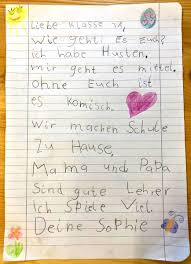 Liebe Klasse 1a,
Wie geht! Es euch?
ich habe Husten.
mir geht es mittel.
Ohne Euch ist
es komisch.
Wir machen Schule
Zu Hause,
Mama und Papa
Sind gute Lehrer
Ich Spiele Viel.
Deine Sophie